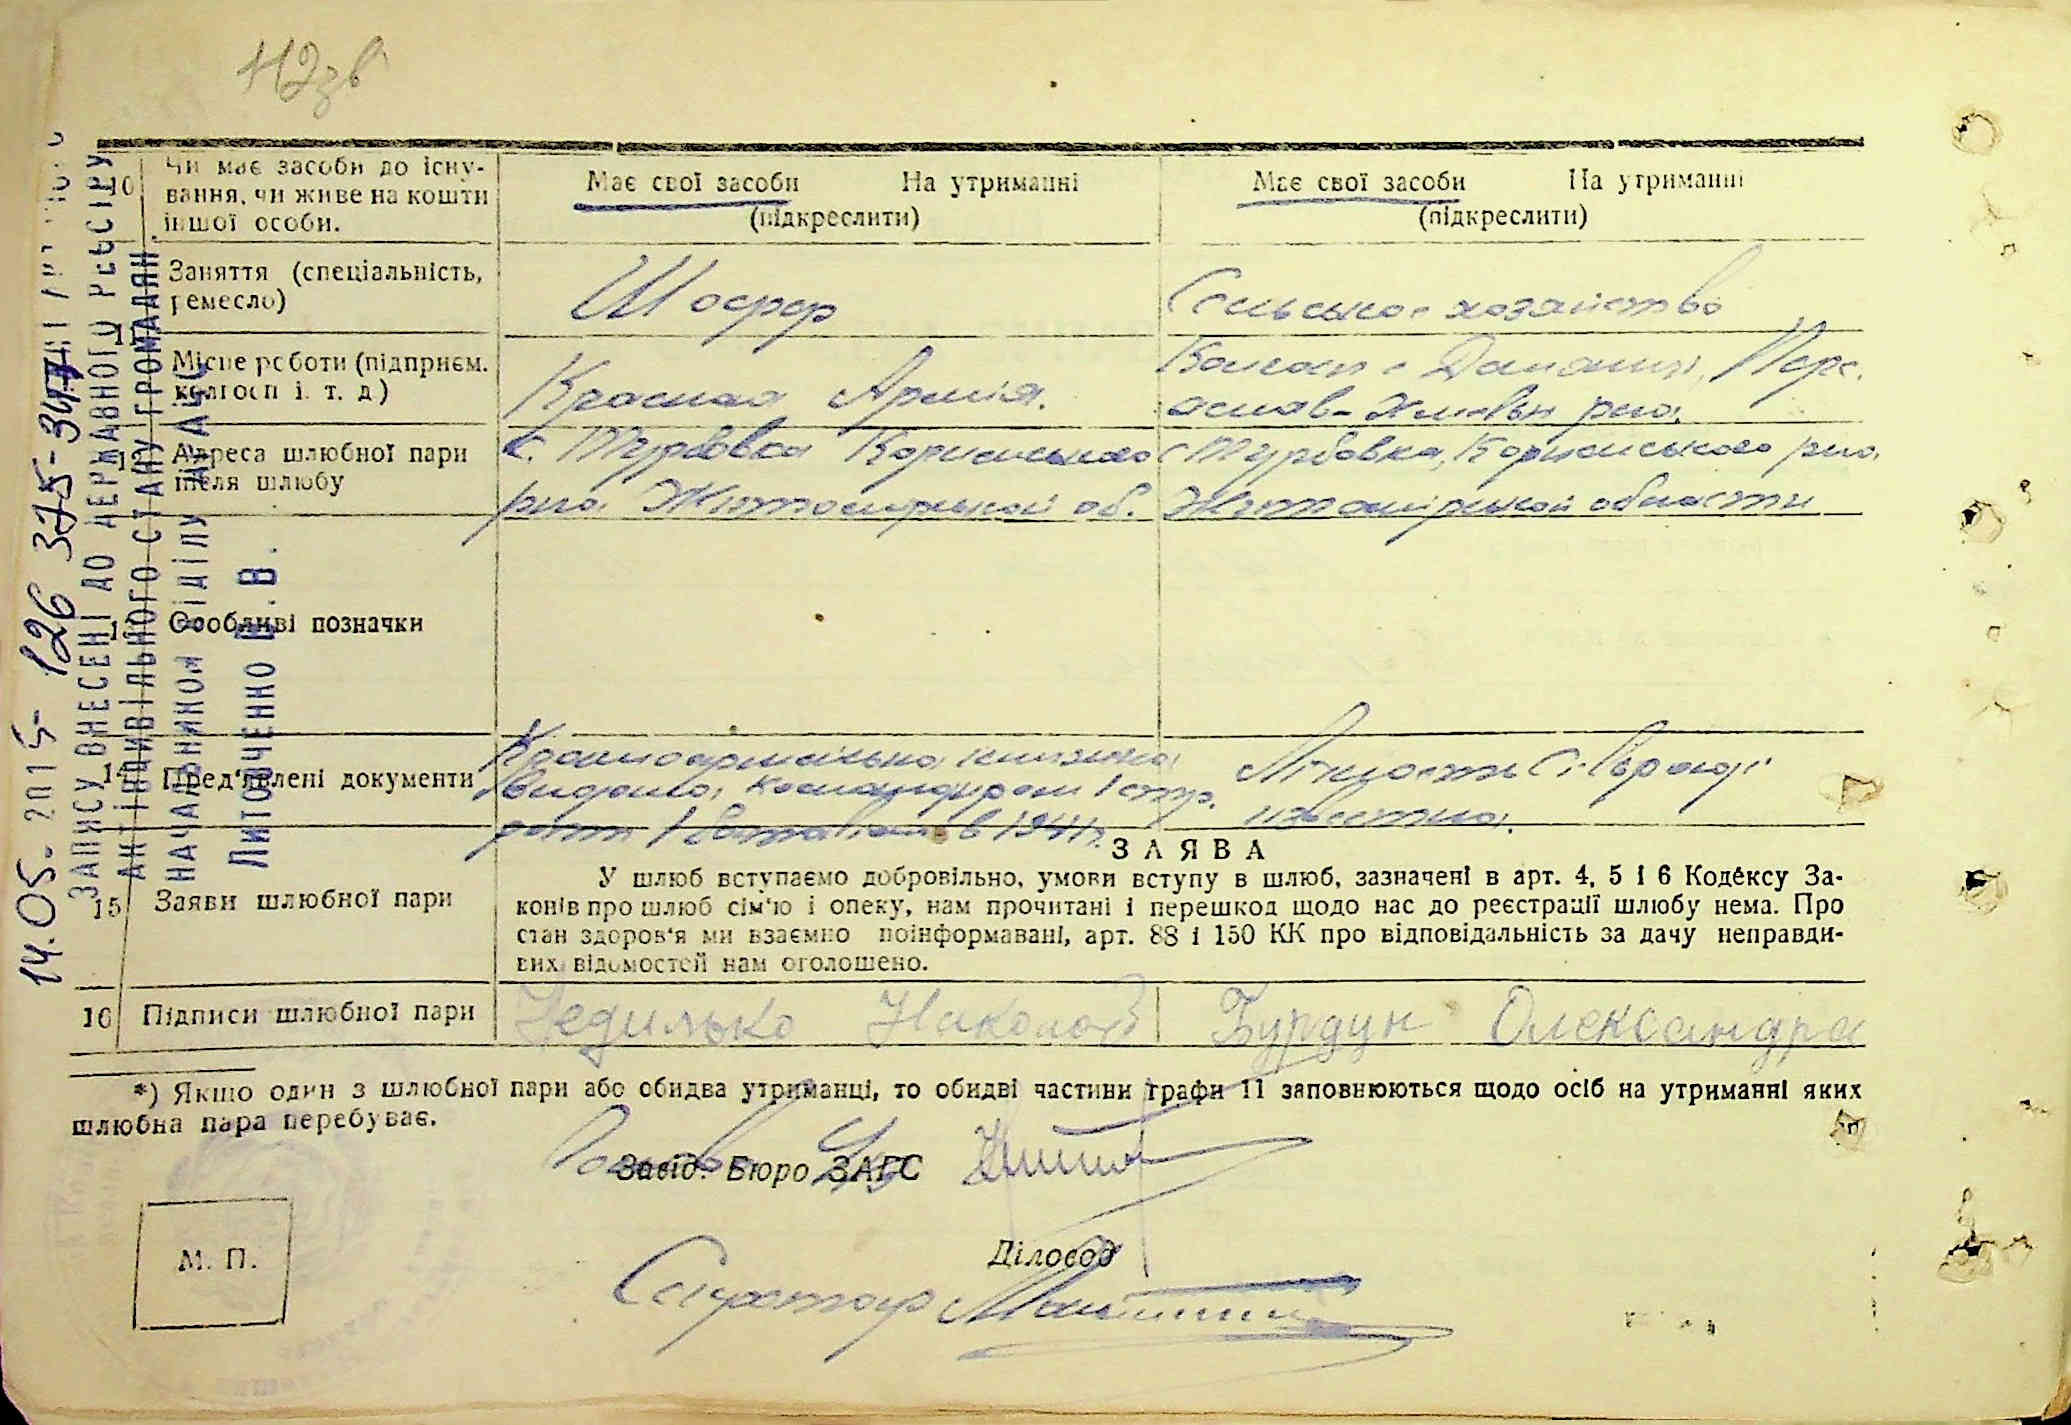 112зв
10 Чи має засоби до існу-
вання, чи живе на кошти
іншої особи.
Має свої засоби На утриманні
(підкреслити)
Має свої засоби На утриманні
(підкреслити)
11 Заняття (спеціальність,
ремесло)
Шофер
Сельськое хозяйство
Місце роботи (підприєм.
колгосп і. т. д.)
Красная Армія.
Колгосп с Пере-
яслав-Хмельн рна.
12 Адреса шлюбної пари
після шлюбу
с. Турбовка Корнинського
рна. Житомирськой об.
с Турбовка, Корнинського рна,
Житомірськой области
13 Особливі позначки
14 Пред'явлені документи
Красноармейська книжка
видана, командиром 1 стр.
роти 1 баталіона в 1941 р.
Лічность
известна.
15 Заяви шлюбної пари
ЗАЯВА
У шлюб вступаємо добровільно, умови вступу в шлюб, зазначені в арт. 4, 5 і 6 Кодексу За-
конів про шлюб сім'ю і опеку, нам прочитані і перешкод щодо нас до реєстрації шлюбу нема. Про
стан здоров'я ми взаємно поінформавані, арт. 88 і 150 КК про відповідальність за дачу неправди-
вих відомостей нам оголошено.
16 Підписи шлюбної пари
Недилько Бурдун Олександра
*) Якщо один з шлюбної пари або обидва утриманці, то обидві частини графи 11 заповнюються щодо осіб на утриманні яких
шлюбна пара перебуває.
Завід. Бюро ЗАГС
М. П.
Діловод
Секретар
14.05.2015- 126 375-34
ЗАПИСУ ВНЕСЕНІ ДО ДЕРЖАВНОГО РЕЄСТРУ
АКТІВ ЦИВІЛЬНОГО СТАНУ ГРОМАДЯН
НАЧАЛЬНИКОМ ВІДДІЛУ
ЛИТОЧЕНКО .В.